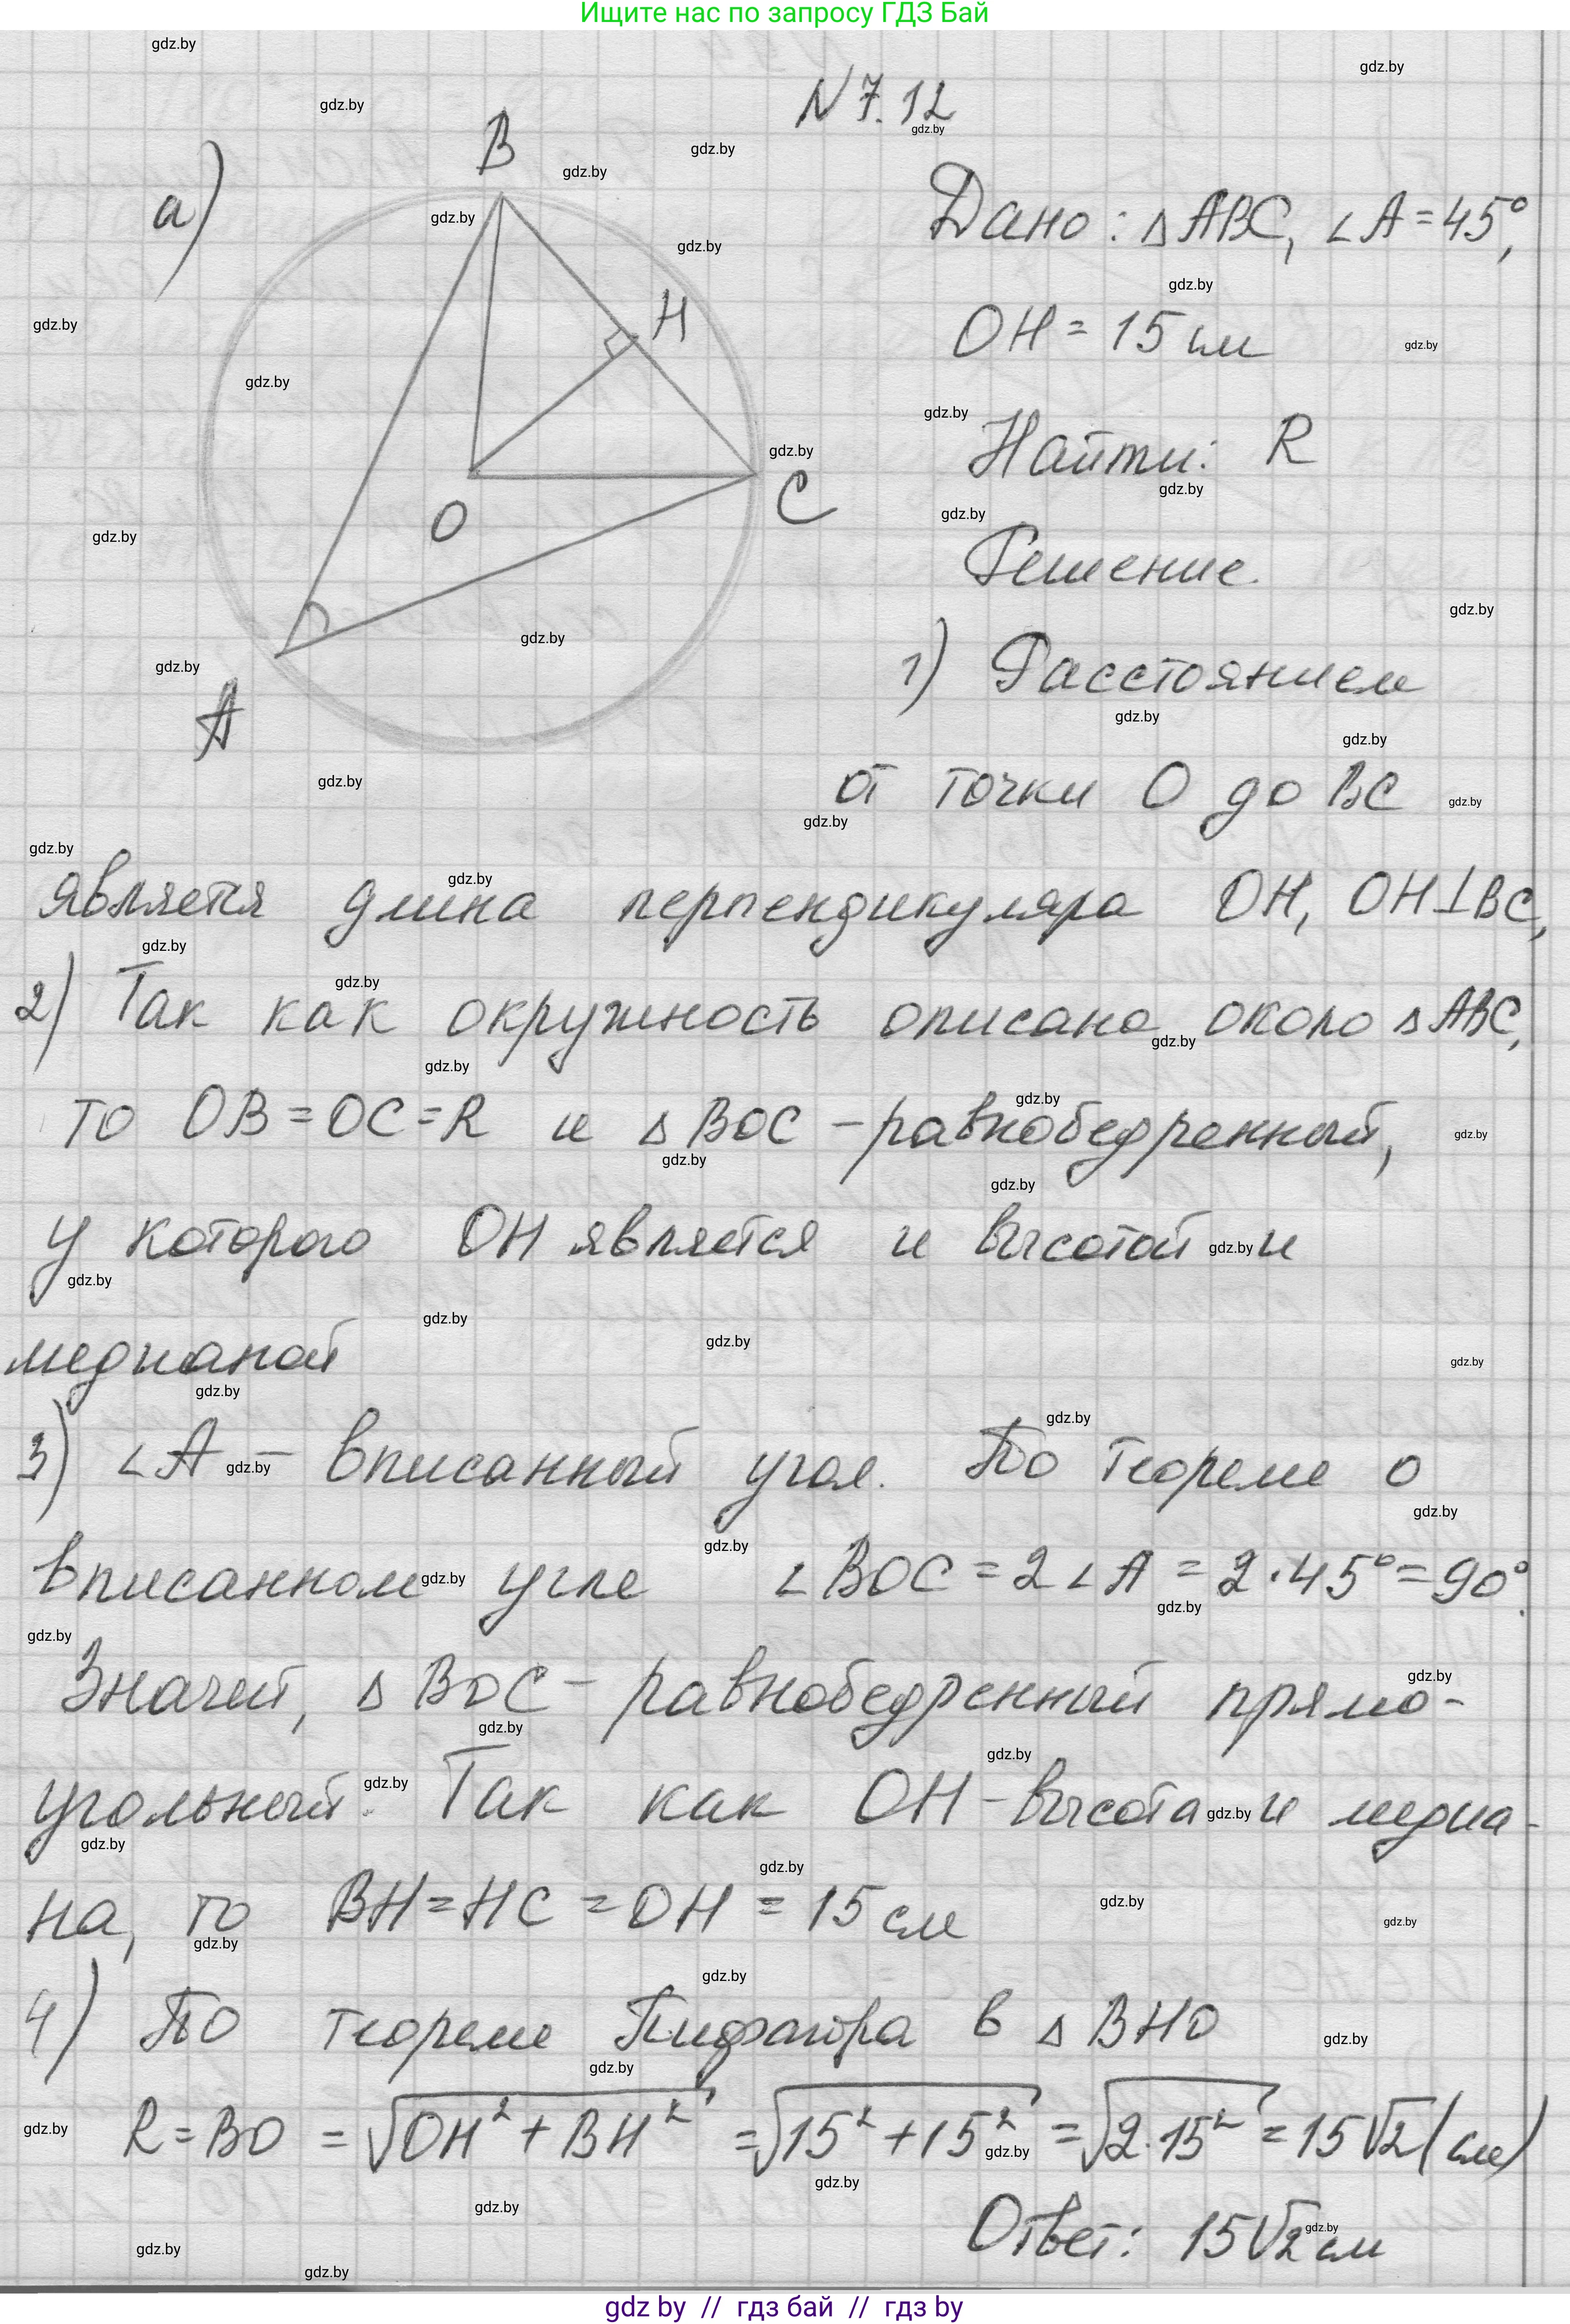 Ищите нас по запросу ГДЗ Бай
N 7.12
а)
B
H
O
C
A
Дано: △ABC, ∠A = 45°,
OH = 15 см
Найти: R
Решение.
1) Расстоянием
от точки O до BC
является длина перпендикуляра OH, OH⊥BC,
2) Так как окружность описана около △ABC,
то OB = OC = R и △BOC – равнобедренный,
у которого OH является и высотой и
медианой
3) ∠A – вписанный угол. По теореме о
вписанном угле ∠BOC = 2∠A = 2·45° = 90°.
Значит, △BOC – равнобедренный прямо-
угольный. Так как OH – высота и медиа-
на, то BH = HC = OH = 15 см
4) По теореме Пифагора в △BHO
R = BO = √OH² + BH² = √15² + 15² = √2·15² = 15√2 (см)
Ответ: 15√2 см
gdz by // гдз бай // гдз by